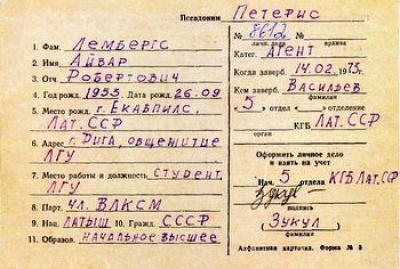 Псевдоним Петерис
1. Фам. Лембергс
2. Имя Айвар
3. Отч. Робертович
4. Год рожд. 1953. Дата рожд. 26.09
5. Место рожд. г. Екабпилс,
Лат. ССР
6. Адрес г. Рига, общежитие
ЛГУ
7. Место работы и должность студент,
ЛГУ
8. Парт. чл. ВЛКСМ
9. Нац. латыш 10. Гражд. СССР
11. Образов. начальное высшее
№ 8612 №
личн. дела архива
Катег. Агент
Когда заверб. 14.02.1973г.
Кем заверб. Васильев
фамилия
« 5 » отдел « » отделение
КГБ Лат. ССР
орган
Оформить личное дело
и взять на учет
Нач. 5 отдела КГБ Лат. ССР
подпись
( Зукул )
фамилия
Алфавитная карточка. Форма № 3